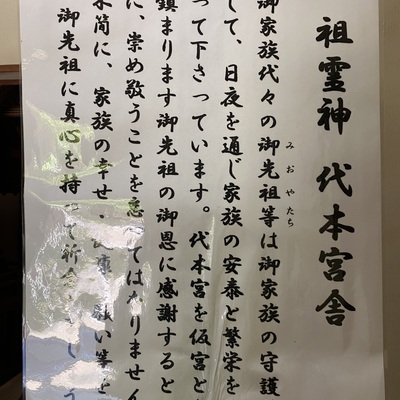 祖霊神 代本宮舎
御家族代々の御先祖等は御家族の守護
みおやたち
して、日夜を通じ家族の安泰と繁栄を
って下さっています。代本宮を仮宮と
鎮まります御先祖の御恩に感謝すると
に、崇め敬うことを忘れてはなりません
水筒に、家族の幸せ・健康
願い等を
御先祖に真心を持って祈念